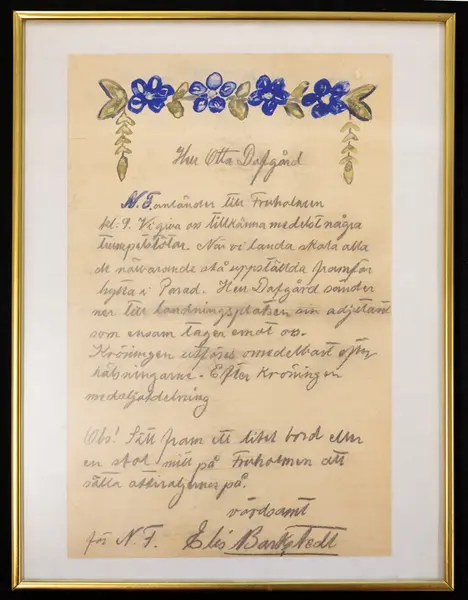 Herr Otto Dafgård
N.F. anländer till Fruholmen
kl. 9. Vi giva oss tillkänna medelst några
trumpetstötar. När vi landa skola alla
de närvarande stå uppställda framför
hytta i Parad. Herr Dafgård sänder
ner till landningsplatsen sin adjutant
som ensam tager emot oss.
Kröningen utföres omedelbart efter
hälsningarne. Efter Kröningen
medaljutdelning
Obs! Sätt fram ett litet bord eller
en stol mitt på Fruholmen att
sätta attiraljerna på.
vördsamt
för N.F. Elis Barkstedt